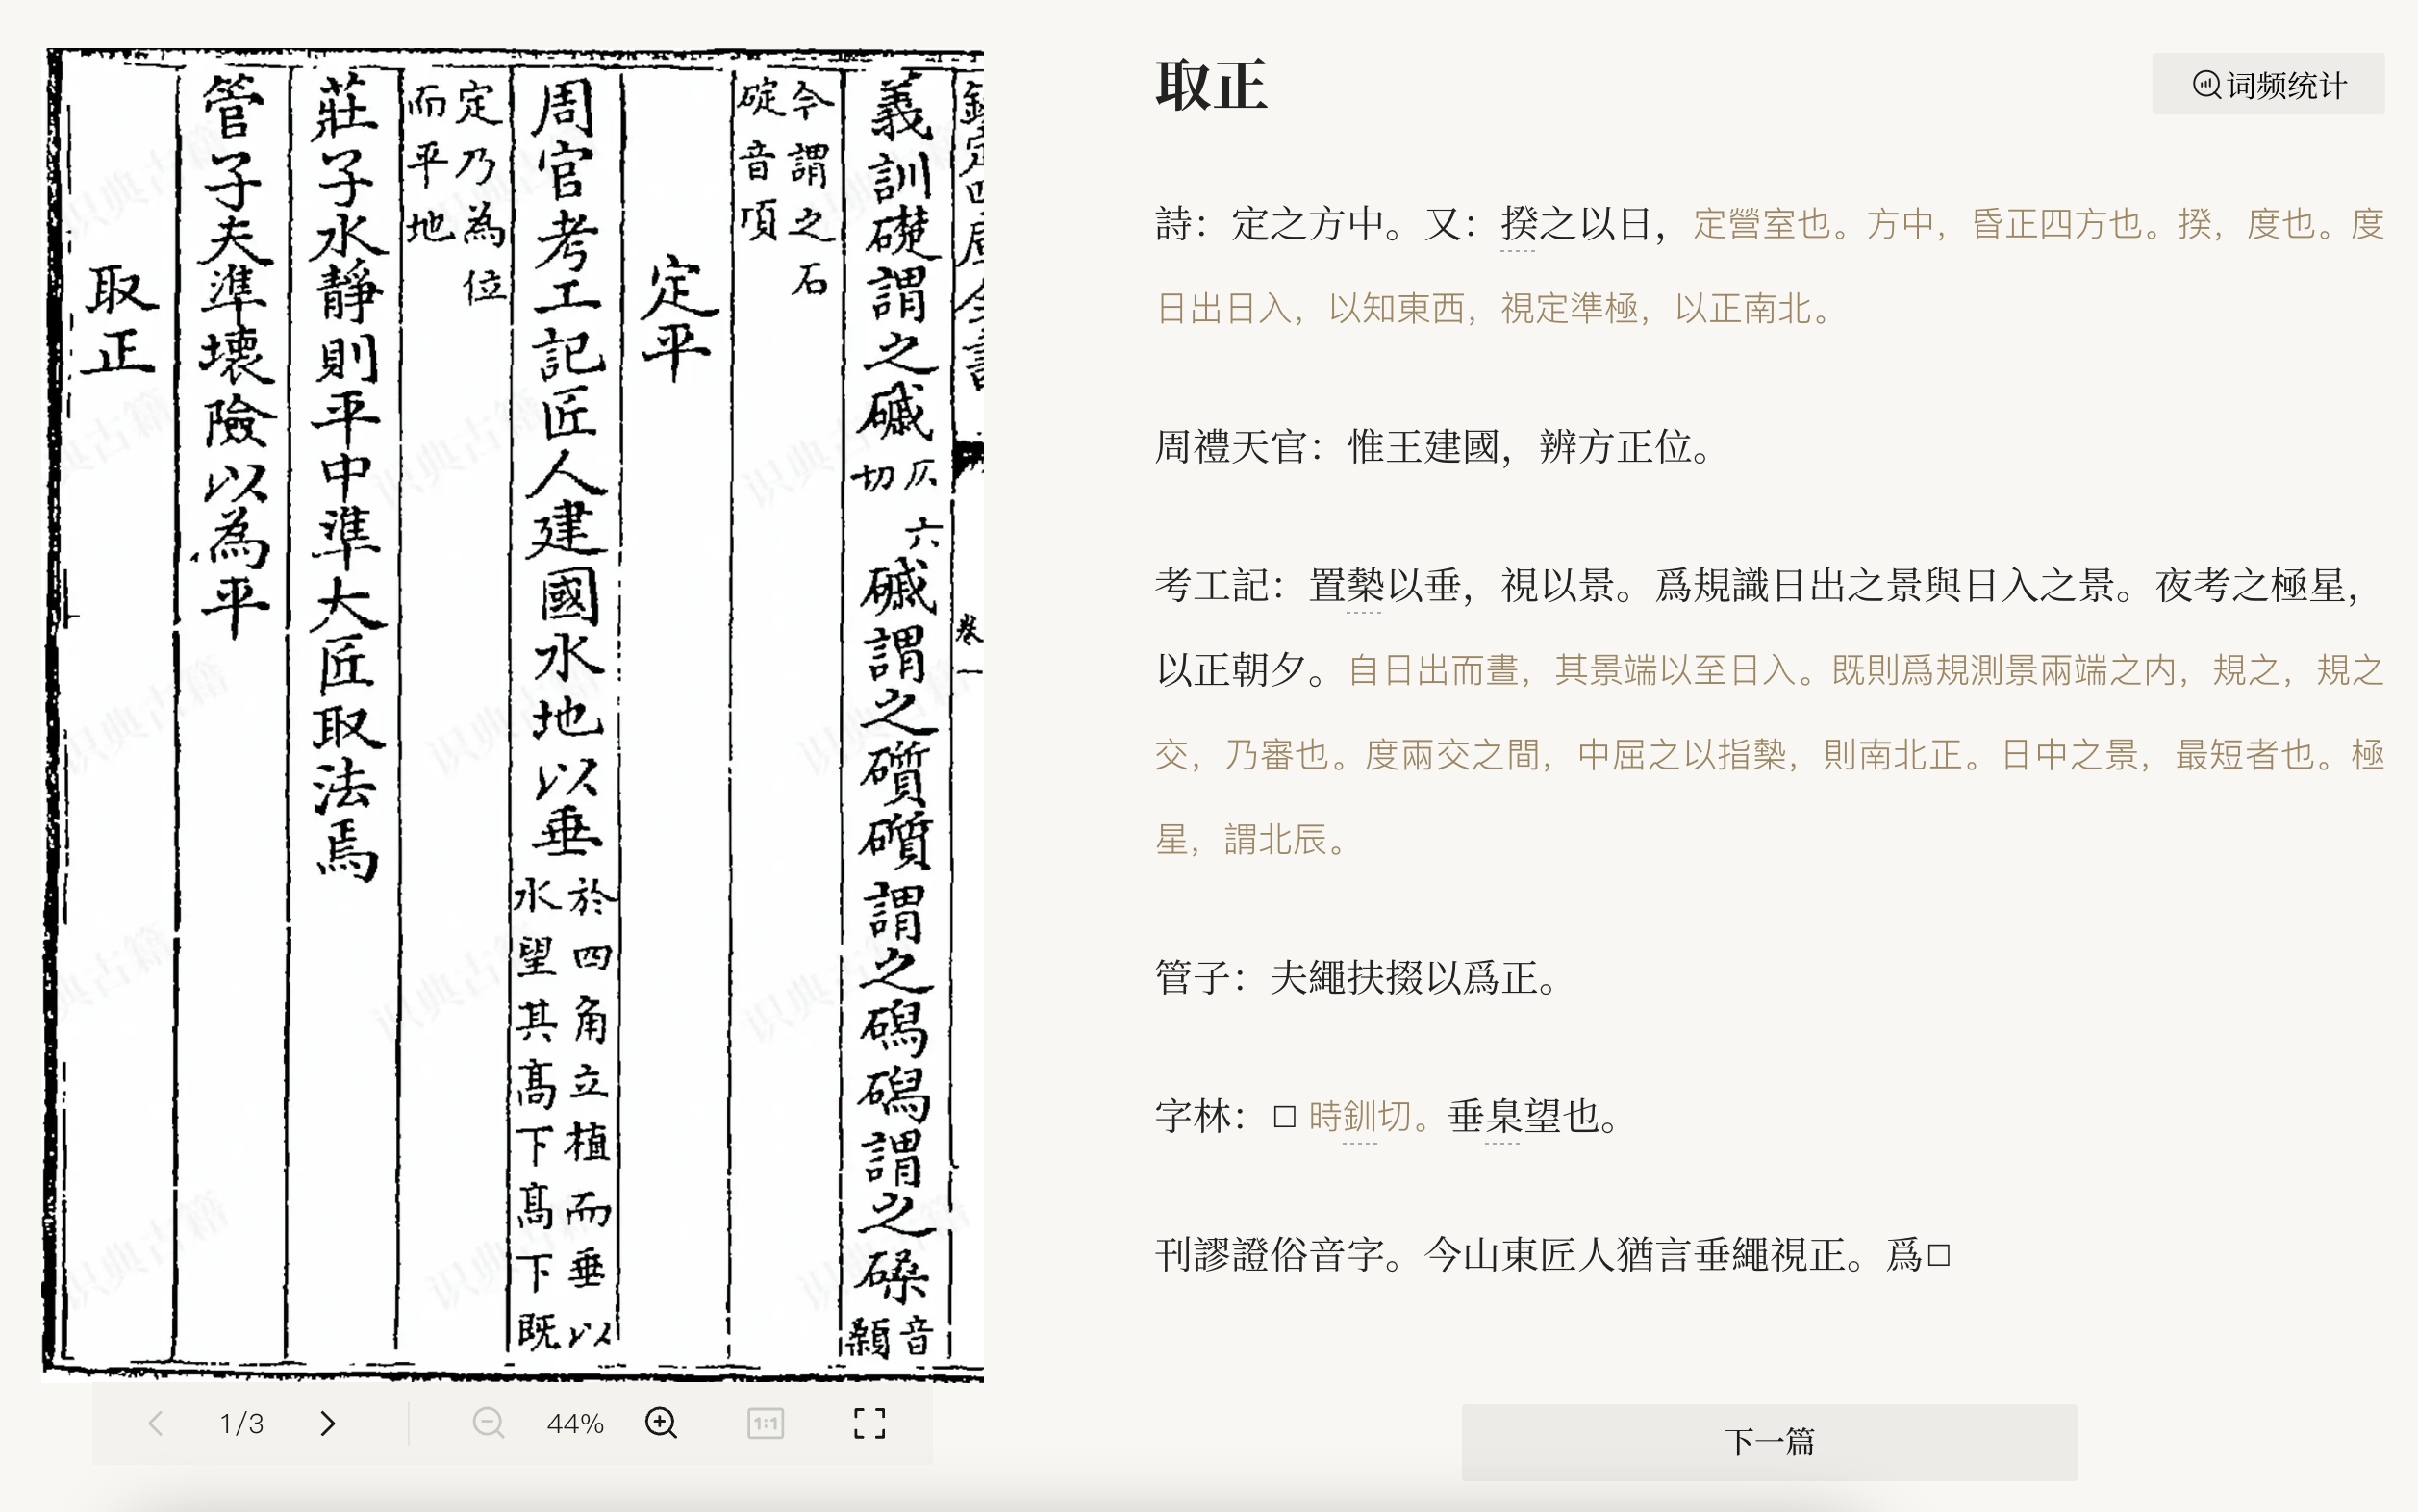 義訓礎謂之磩仄六切磩謂之礩礩謂之磶磶謂之磉音顙
今謂之石碇音頂
定平
周官考工記匠人建國水地以垂於四角立植而垂以水望其高下高下既
定乃為位而平地
莊子水靜則平中準大匠取法焉
管子夫準壞險以為平
取正
卷一
1/3
44%
1:1
取正
词频统计
詩：定之方中。又：揆之以日，定營室也。方中，昏正四方也。揆，度也。度
日出日入，以知東西，視定準極，以正南北。
周禮天官：惟王建國，辨方正位。
考工記：置槷以垂，視以景。爲規識日出之景與日入之景。夜考之極星，
以正朝夕。自日出而晝，其景端以至日入。既則爲規測景兩端之内，規之，規之
交，乃審也。度兩交之間，中屈之以指槷，則南北正。日中之景，最短者也。極
星，謂北辰。
管子：夫繩扶掇以爲正。
字林：□時釧切。垂臬望也。
刊謬證俗音字。今山東匠人猶言垂繩視正。爲□
下一篇